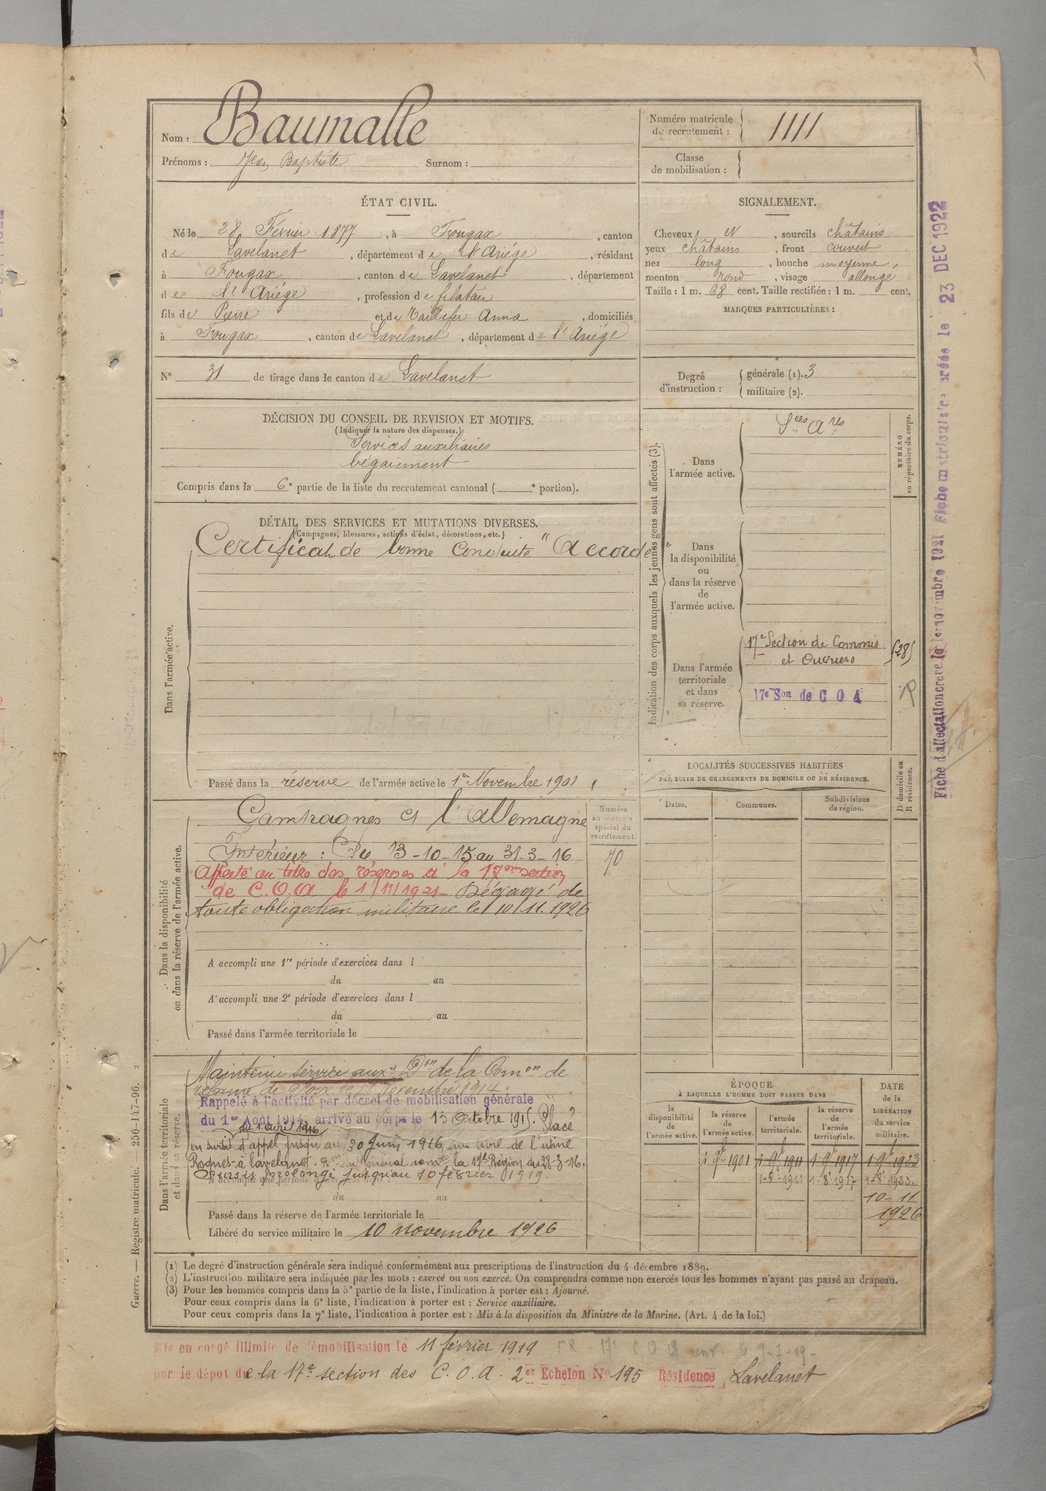 Nom : Baumalle
Prénoms : Jean Baptiste Surnom :
Numéro matricule de recrutement : 1111
Classe de mobilisation :
ÉTAT CIVIL.
Né le 28 Février 1877, à Fougax, canton
de Lavelanet, département de l'Ariége, résidant
à Fougax, canton de Lavelanet, département
de l'Ariége, profession de filateur
fils de Pierre et de Taillefer Anna, domiciliés
à Fougax, canton de Lavelanet, département de l'Ariége
N° 31 de tirage dans le canton de Lavelanet
SIGNALEMENT.
Cheveux N, sourcils châtains
yeux châtains, front couvert
nez long, bouche moyenne,
menton rond, visage allongé
Taille : 1 m. 68 cent. Taille rectifiée : 1 m. cent.
MARQUES PARTICULIÈRES :
Degré d'instruction : générale (1). 3
militaire (2).
DÉCISION DU CONSEIL DE REVISION ET MOTIFS.
(Indiquer la nature des dispenses.)
Services auxiliaires
bégaiement
Compris dans la 6e partie de la liste du recrutement cantonal ( e portion).
DÉTAIL DES SERVICES ET MUTATIONS DIVERSES.
(Campagnes, blessures, actions d'éclat, décorations, etc.)
Certificat de bonne conduite "Accordé"
Dans l'armée active.
Passé dans la réserve de l'armée active le 1er Novembre 1901,
Indication des corps auxquels les jeunes gens sont affectés (3).
Dans l'armée active.
Sces Ares
NUMÉRO au répertoire du corps.
Dans la disponibilité ou dans la réserve de l'armée active.
Dans l'armée territoriale et dans sa réserve.
17e Section de Commis
et Ouvriers
(28)
17e Son de C O A
R
Dans la disponibilité ou dans la réserve de l'armée active.
Campagnes ct l'Allemagne
Intérieur : Du 13-10-15 au 31-3-16
Affecté au titre des réserves à la 17eme section
de C.O.A le 1/11/1921 Dégagé de
toute obligation militaire le 10.11.1926
A accompli une 1re période d'exercices dans l
du au
A accompli une 2e période d'exercices dans l
du au
Passé dans l'armée territoriale le
Numéro au contrôle spécial du recrutement.
70
LOCALITÉS SUCCESSIVES HABITÉES
PAR SUITE DE CHANGEMENTS DE DOMICILE OU DE RÉSIDENCE.
Dates. Communes. Subdivisions de région.
D domicile ou R résidence.
Dans l'armée territoriale et dans sa réserve.
Maintenu service auxre Don de la Comon de
réforme de Foix le 17 Décembre 1914.
Rappelé à l'activité par décret de mobilisation générale
du 1er Août 1914, arrivé au corps le 13 Octobre 1915. Placé
du 1 avril 1916
en sursis d'appel jusqu'au 30 Juin 1916 au titre de l'usine
à Lavelanet. la 17e Région du 28-3-16.
Sursis prolongé jusqu'au 10 février 1919.
A accompli une période d'exercices dans l
du au
Passé dans la réserve de l'armée territoriale le
Libéré du service militaire le 10 novembre 1926
ÉPOQUE
À LAQUELLE L'HOMME DOIT PASSER DANS
la disponibilité de l'armée active. la réserve de l'armée active. l'armée territoriale. la réserve de l'armée territoriale.
DATE de la LIBÉRATION du service militaire.
1 9bre 1901 1 9bre 1911 1 9bre 1917 1 9bre 1923
1-8-1911 1-8-1917 1-8-1923.
10-11
1926
(1) Le degré d'instruction générale sera indiqué conformément aux prescriptions de l'instruction du 4 décembre 1889.
(2) L'instruction militaire sera indiquée par les mots : exercé ou non exercé. On comprendra comme non exercés tous les hommes n'ayant pas passé au drapeau.
(3) Pour les hommes compris dans la 5e partie de la liste, l'indication à porter est : Ajourné.
Pour ceux compris dans la 6e liste, l'indication à porter est : Service auxiliaire.
Pour ceux compris dans la 7e liste, l'indication à porter est : Mis à la disposition du Ministre de la Marine. (Art. 4 de la loi.)
Mis en congé illimité de démobilisation le 11 février 1919
par le dépôt de la 17e section des C.O.A. 2er Echelon N° 195 Résidence Lavelanet
Guerre. — Registre matricule. — 256-147-96.
Fiche d'affectation créée le 1er novembre 1921 Fiche matriculaire créée le 23 DEC 1922